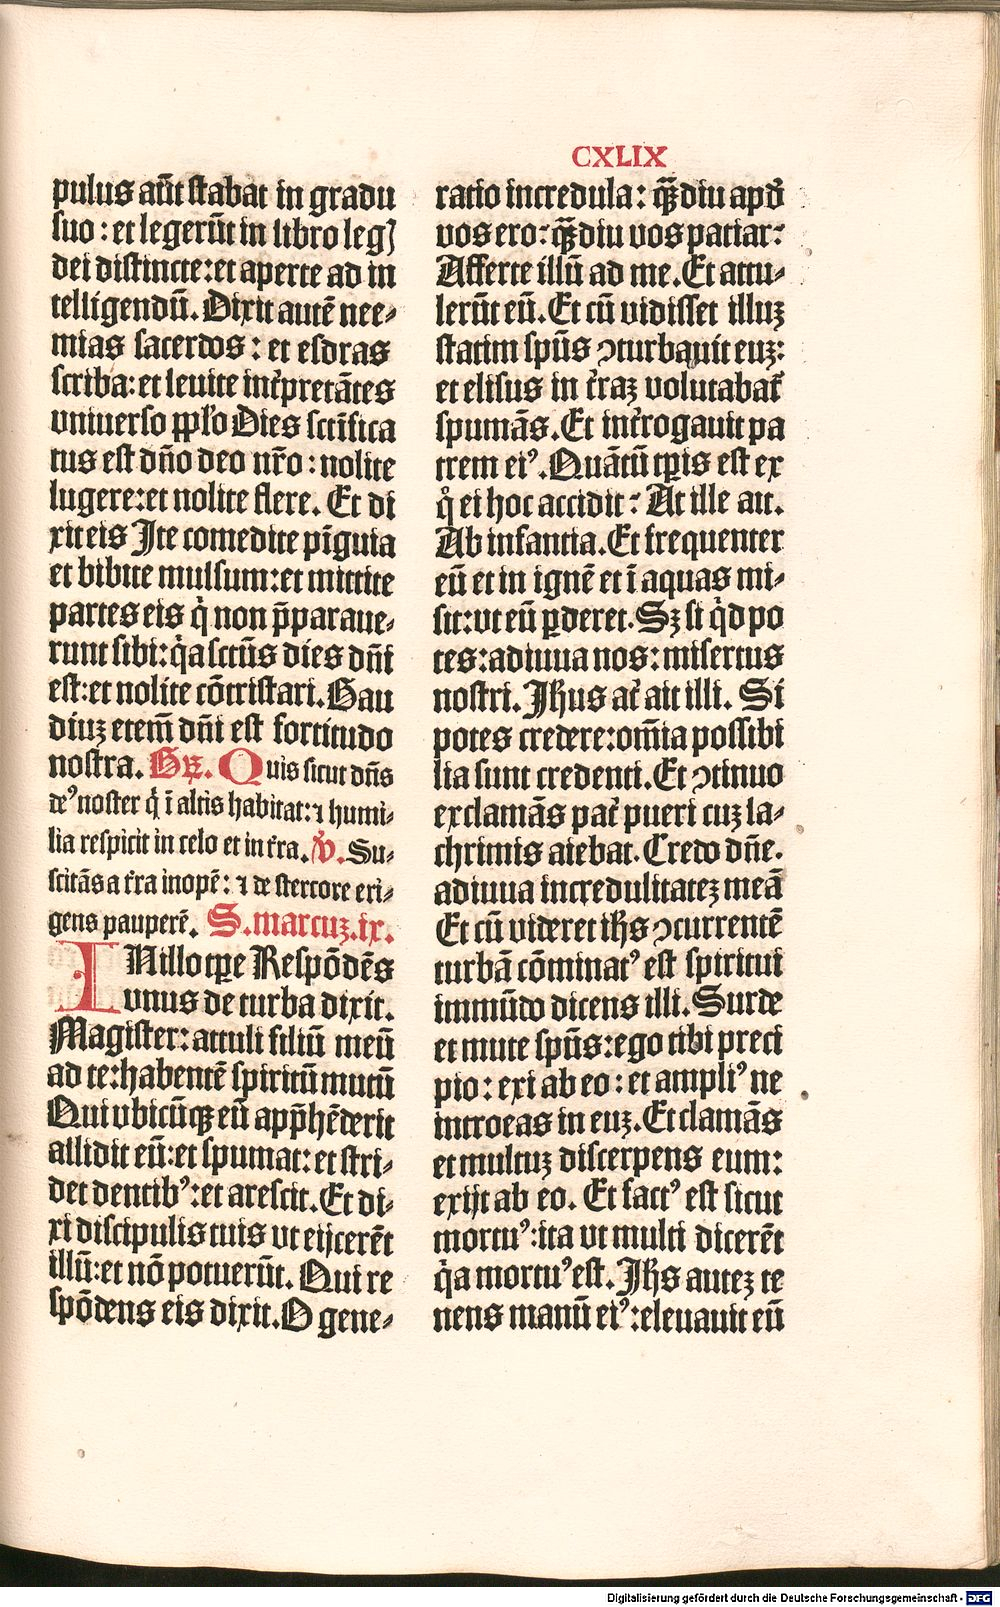 CXLIX
pulus aūt stabat in gradu
suo : et legerūt in libro leg
dei distincte: et aperte ad in
telligendū. Dixit autē nee⸗
mias sacerdos : et esdras
scriba: et leuite int͛pretātes
vniuerso pplo Dies sctīfica
tus est dn̄o deo nr̄o : nolite
lugere: et nolite flere. Et di
xit eis Ite comedite pīguia
et bibite mulsum: et mittite
partes eis qͥ non p̄paraue⸗
runt sibi: qͥa sctūs dies dn̄i
est: et nolite cōtristari. Gau
diuꝫ etem̄ dn̄i est fortitudo
nostra. Gꝶ. Quis sicut dn̄s
deꝰ noster qͥ ī altis habitat: ⁊ humi⸗
lia respicit in celo et in t͛ra. ℣. Su⸗
scitās a t͛ra inopē: ⁊ de stercore eri⸗
gens pauperē. S. marcuꝫ. ix.
IN illo tꝑe Respōdēs
vnus de turba dixit.
Magister: attuli filiū meū
ad te: habentē spiritū mutū
Qui vbicūqꝫ eū app̄hēderit
allidit eū: et spumat: et stri⸗
det dentibꝰ: et arescit. Et di⸗
xi discipulis tuis vt eijcerēt
illū: et nō potuerūt. Qui re
spōdens eis dixit. O gene⸗
ratio incredula : qͣ̄diu apd̄
vos ero: qͣ̄diu vos patiar:
Afferte illū ad me. Et attu⸗
lerūt eū. Et cū vidisset illuꝫ
statim spūs ꝯturbauit euꝫ:
et elisus in t͛raꝫ volutabat͛
spumās. Et int͛rogauit pa
trem eiꝰ. Quātū tꝑis est ex
qͦ ei hoc accidit : At ille ait.
Ab infantia. Et frequenter
eū et in ignē et ī aquas mi⸗
sit: vt eū ꝑderet. Sꝫ si qͥd po
tes: adiuua nos: misertus
nostri. Jhus at͛ ait illi. Si
potes credere: om̄ia possibi
lia sunt credenti. Et ꝯtinuo
exclamās pat͛ pueri cuꝫ la⸗
chrimis aiebat. Credo dn̄e.
adiuua incredulitateꝫ meā
Et cū videret ih̄s ꝯcurrentē
turbā cōminatꝰ est spiritui
immūdo dicens illi. Surde
et mute spūs: ego tibi preci
pio : exi ab eo : et ampliꝰ ne
introeas in euꝫ. Et clamās
et multuꝫ discerpens eum:
exijt ab eo. Et factꝰ est sicut
mortuꝰ: ita vt multi dicerēt
qͥa mortuꝰ est. Jh̄s auteꝫ te
nens manū eiꝰ: eleuauit eū
Digitalisierung gefördert durch die Deutsche Forschungsgemeinschaft - DFG